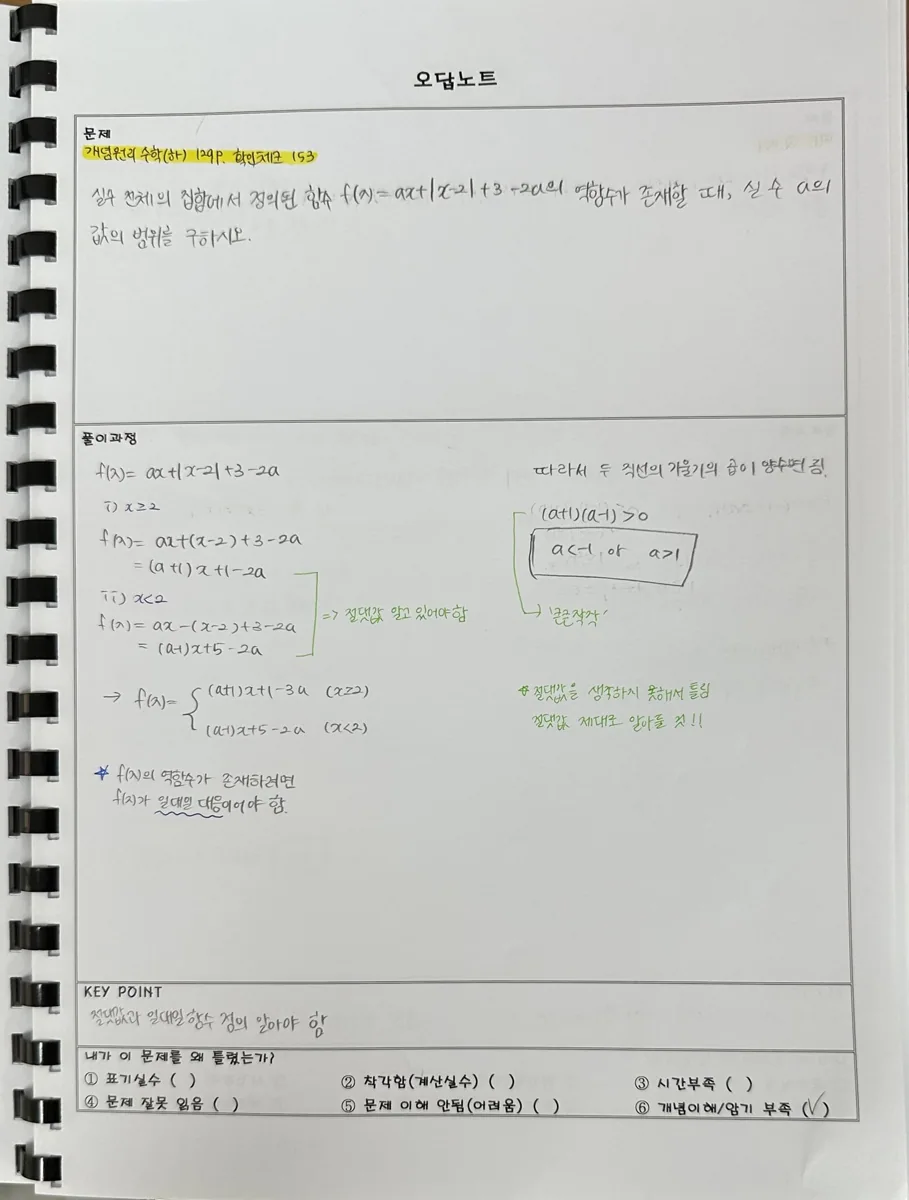 오답노트
문제
개념원리 수학(하) 129p. 확인체크 153
실수 전체의 집합에서 정의된 함수 f(x)=ax+|x-2|+3-2a의 역함수가 존재할 때, 실수 a의
값의 범위를 구하시오.
풀이과정
f(x)= ax+|x-2|+3-2a
i) x≥2
f(x)= ax+(x-2)+3-2a
= (a+1)x+1-2a
ii) x<2
f(x)= ax-(x-2)+3-2a
= (a-1)x+5-2a
=> 절댓값 알고 있어야 함
→ f(x)= { (a+1)x+1-3a (x≥2)
(a-1)x+5-2a (x<2)
☆ f(x)의 역함수가 존재하려면
f(x)가 일대일 대응이어야 함.
따라서 두 직선의 기울기의 곱이 양수면 됨.
(a+1)(a-1)>0
a<-1 or a>1
→ '큰큰작작'
☆ 절댓값을 생각하지 못해서 틀림
절댓값 제대로 알아둘 것!!
KEY POINT
절댓값과 일대일함수 정의 알아야 함
내가 이 문제를 왜 틀렸는가?
① 표기실수 ( ) ② 착각함(계산실수) ( ) ③ 시간부족 ( )
④ 문제 잘못 읽음 ( ) ⑤ 문제 이해 안됨(어려움) ( ) ⑥ 개념이해/암기 부족 (✓)